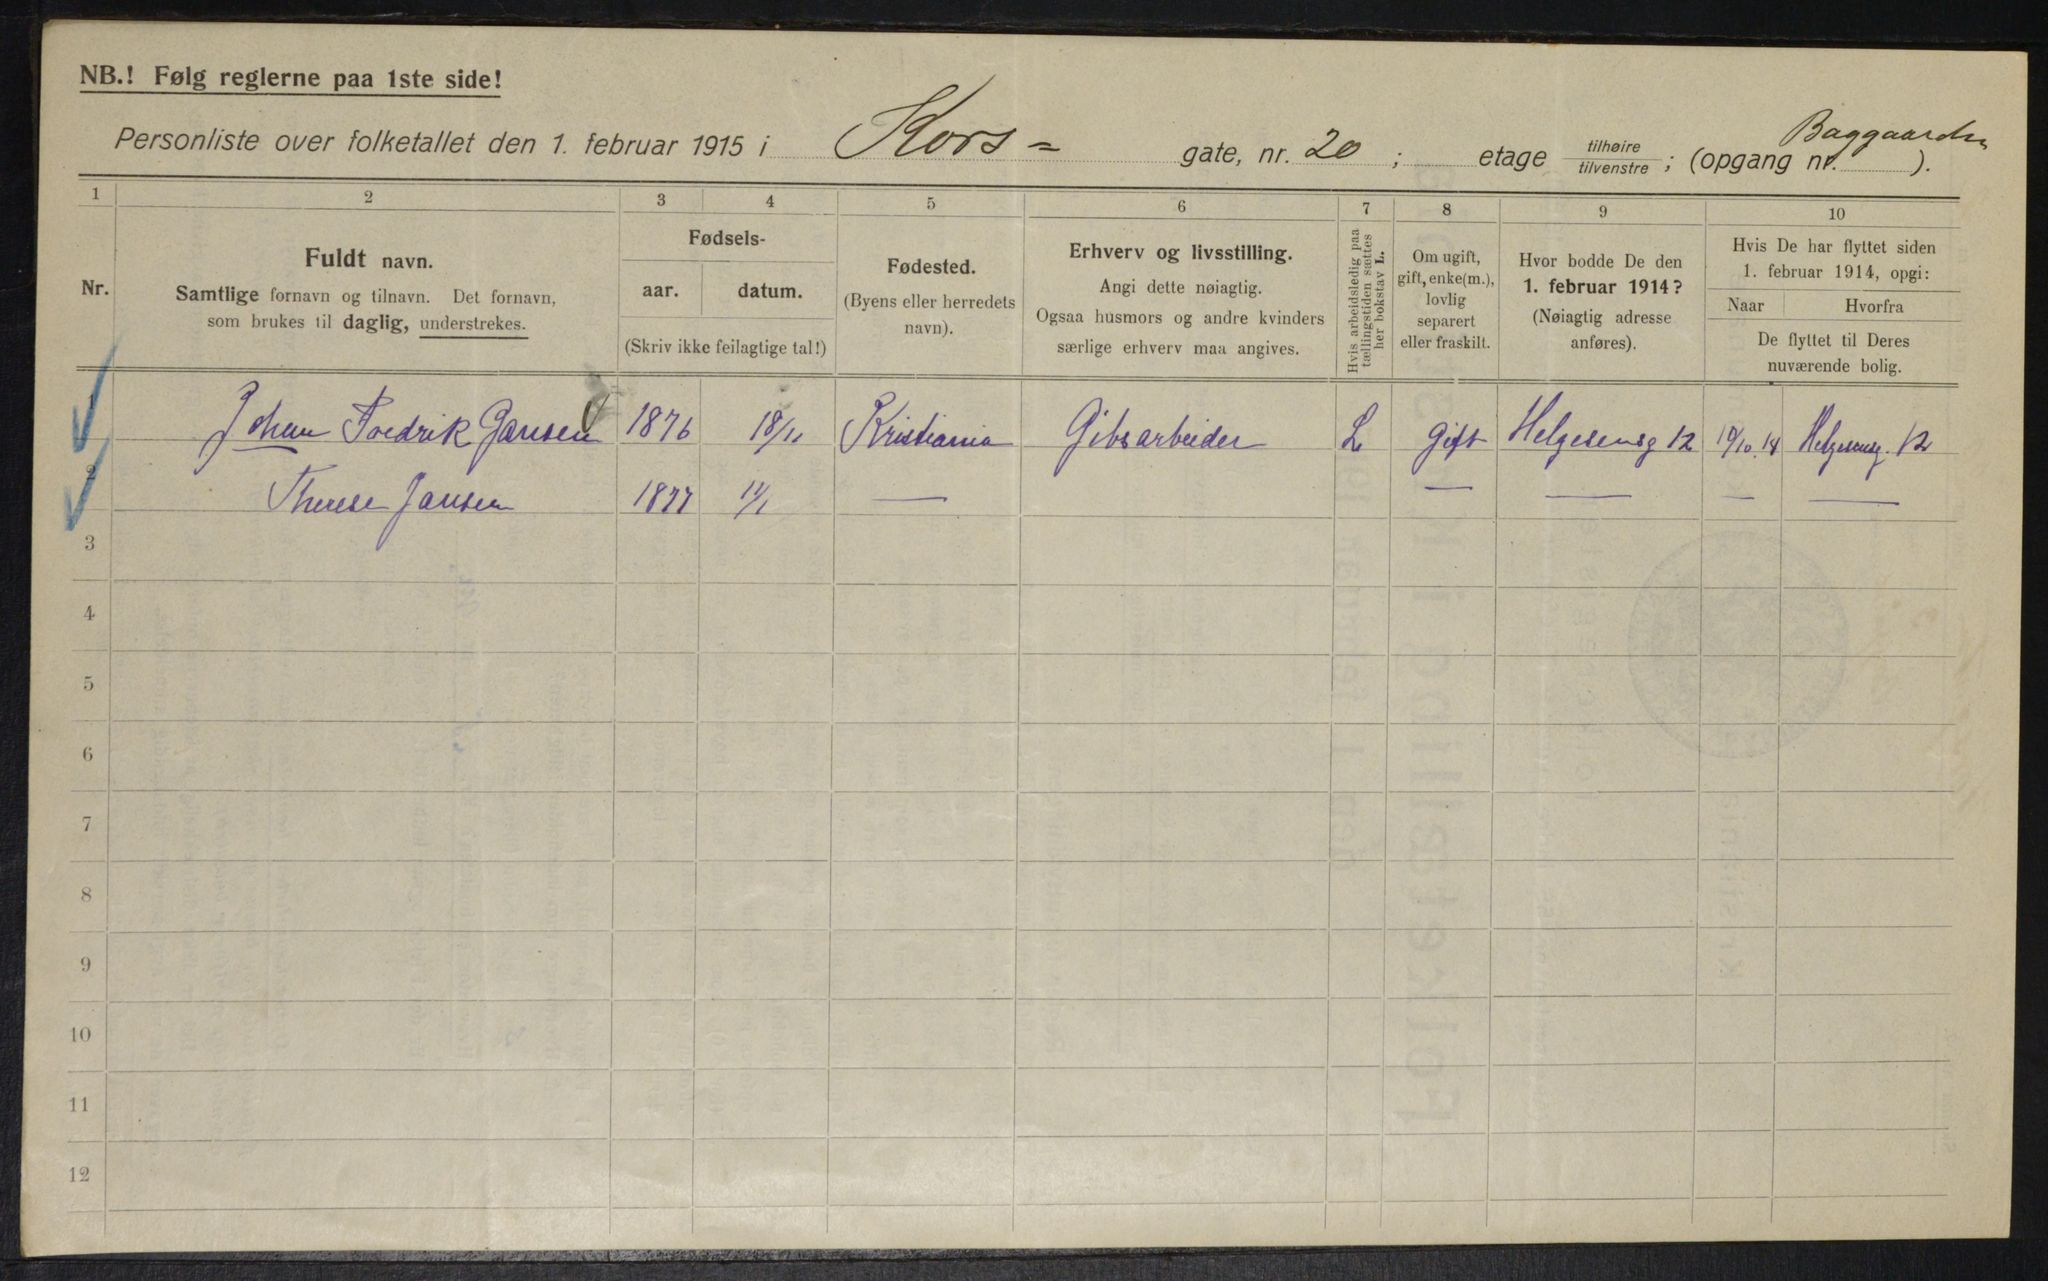 NB.! Følg reglerne paa 1ste side!
Personliste over folketallet den 1. februar 1915 i Kors= gate, nr. 20; etage tilhøire tilvenstre; (opgang nr. ). Baggaarden
1 2 3 4 5 6 7 8 9 10
Nr.
Fuldt navn.
Samtlige fornavn og tilnavn. Det fornavn,
som brukes til daglig, understrekes.
Fødsels-
aar. datum.
(Skriv ikke feilagtige tal!)
Fødested.
(Byens eller herredets
navn).
Erhverv og livsstilling.
Angi dette nøiagtig.
Ogsaa husmors og andre kvinders
særlige erhverv maa angives.
Hvis arbeidsledig paa
tællingstiden sættes
her bokstav L.
Om ugift,
gift, enke(m.),
lovlig
separert
eller fraskilt.
Hvor bodde De den
1. februar 1914?
(Nøiagtig adresse
anføres).
Hvis De har flyttet siden
1. februar 1914, opgi:
Naar Hvorfra
De flyttet til Deres
nuværende bolig.
1 Johan Fredrik Jansen 1876 18/11 Kristiania Gibsarbeider L Gift Helgesensg 12 10/10.14 Helgesensg. 12
2 Therese Jansen 1877 — — — — —
3
4
5
6
7
8
9
10
11
12